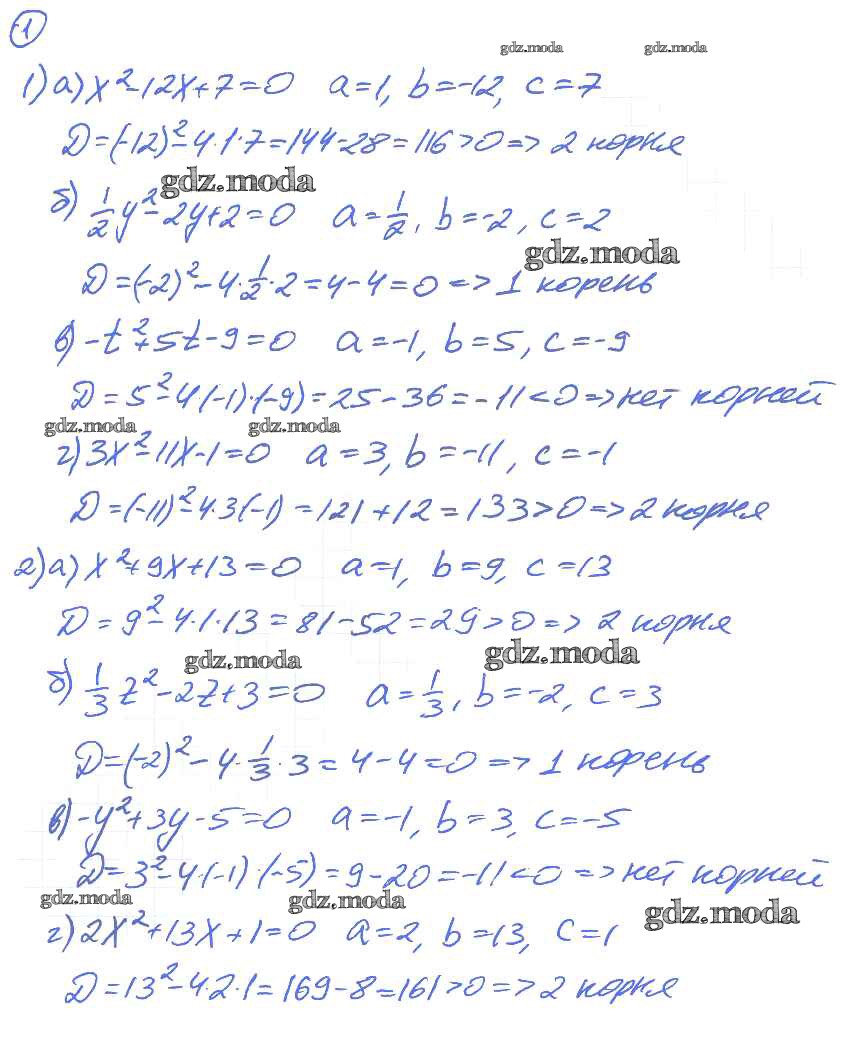 1
gdz.moda gdz.moda
1) а) x²-12x+7=0 a=1, b=-12, c=7
D=(-12)²-4·1·7=144-28=116>0=> 2 корня
gdz.moda
б) 1/2y²-2y+2=0 a=1/2, b=-2, c=2
gdz.moda
D=(-2)²-4·1/2·2=4-4=0=> 1 корень
в) -t²+5t-9=0 a=-1, b=5, c=-9
D=5²-4(-1)·(-9)=25-36=-11<0=> нет корней
gdz.moda gdz.moda
г) 3x²-11x-1=0 a=3, b=-11, c=-1
D=(-11)²-4·3(-1)=121+12=133>0=> 2 корня
2) а) x²+9x+13=0 a=1, b=9, c=13
D=9²-4·1·13=81-52=29>0=> 2 корня
gdz.moda gdz.moda
б) 1/3z²-2z+3=0 a=1/3, b=-2, c=3
D=(-2)²-4·1/3·3=4-4=0=> 1 корень
в) -y²+3y-5=0 a=-1, b=3, c=-5
D=3²-4·(-1)·(-5)=9-20=-11<0=> нет корней
gdz.moda gdz.moda gdz.moda
г) 2x²+13x+1=0 a=2, b=13, c=1
D=13²-4·2·1=169-8=161>0=> 2 корня